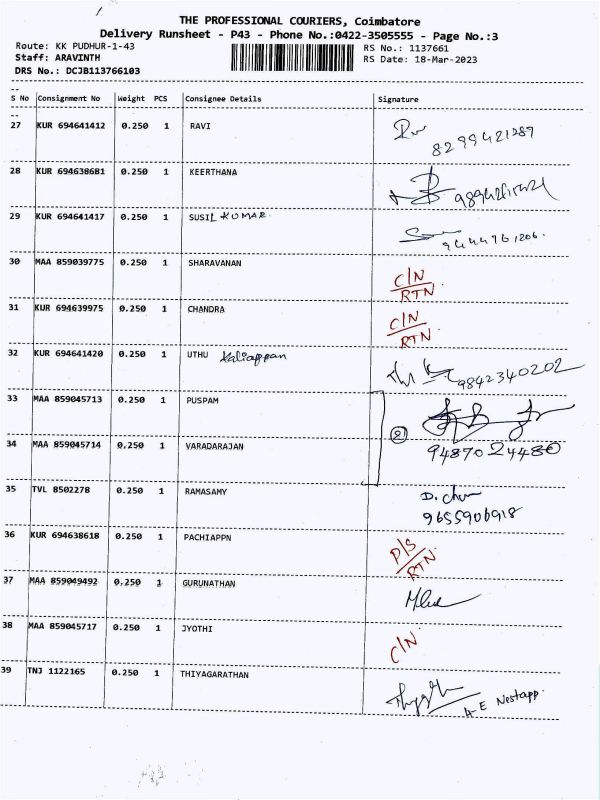 THE PROFESSIONAL COURIERS, Coimbatore
Delivery Runsheet - P43 - Phone No.:0422-3505555 - Page No.:3
Route: KK PUDHUR-1-43 RS No.: 1137661
Staff: ARAVINTH RS Date: 18-Mar-2023
DRS No.: DCJB113766103
S No Consignment No Weight PCS Consignee Details Signature
27 KUR 694641412 0.250 1 RAVI
8299421289
28 KUR 694638681 0.250 1 KEERTHANA
29 KUR 694641417 0.250 1 SUSIL KUMAR.
30 MAA 859039775 0.250 1 SHARAVANAN
C/N
RTN
31 KUR 694639975 0.250 1 CHANDRA
C/N
RTN
32 KUR 694641420 0.250 1 UTHU Kaliappan
9842340202
33 MAA 859045713 0.250 1 PUSPAM
2
34 MAA 859045714 0.250 1 VARADARAJAN
9487024480
35 TVL 8502278 0.250 1 RAMASAMY
9655906918
36 KUR 694638618 0.250 1 PACHIAPPN
P/S
RTN
37 MAA 859049492 0.250 1 GURUNATHAN
38 MAA 859045717 0.250 1 JYOTHI
C/N
39 TNJ 1122165 0.250 1 THIYAGARATHAN
Nestapp.